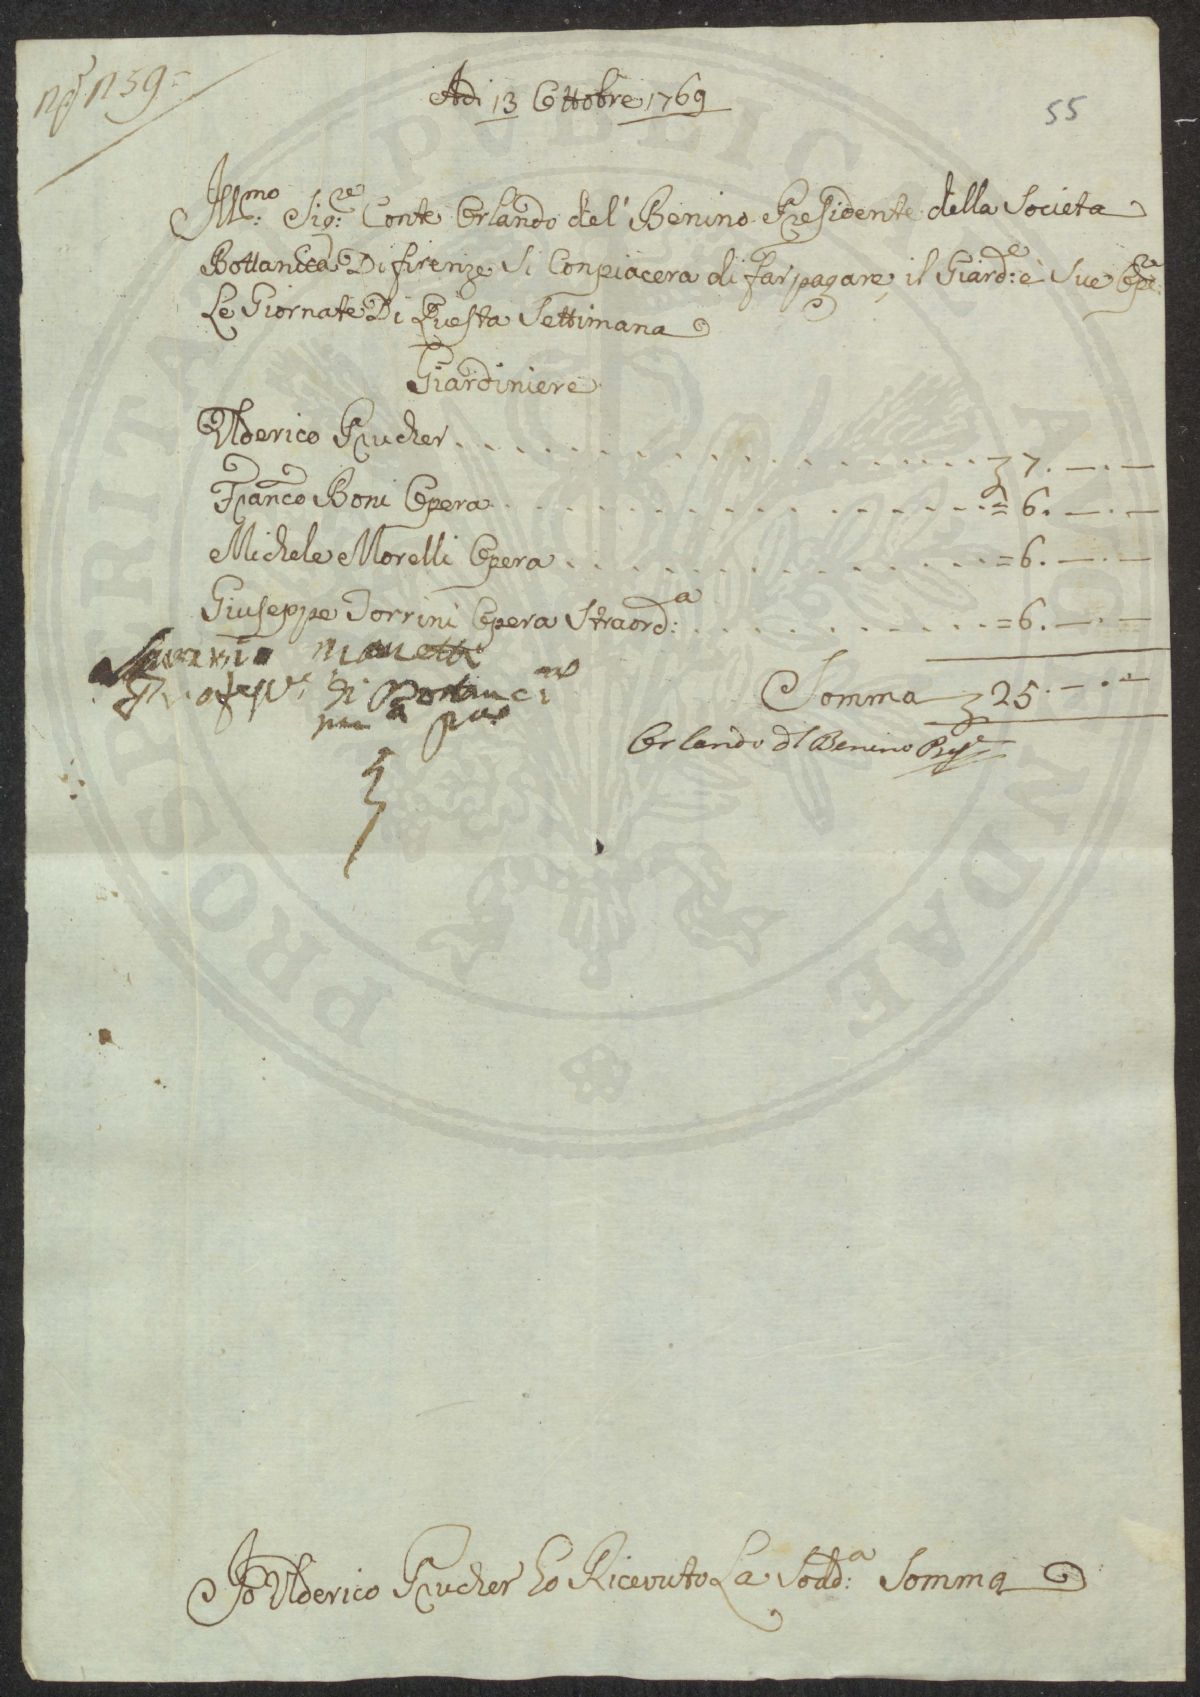 N° 59=
Adi 13 Ottobre 1769
55
Ill:mo Sig:re Conte Orlando del' Benino Presidente della Societa
Bottanica Di firenze Si Conpiacera di far pagare, il Giard:e è Sue Ope:re
Le Giornate Di Questa Settimana
Giardiniere
Ulderico Prucher . . . . . . . . . . . . . . . . 7. —. —
Franco Boni Opera . . . . . . . . . . . . . . . . = 6. —. —
Michele Morelli Opera . . . . . . . . . . . . . . . . = 6. —. —
Giuseppe Torrini Opera Straord:a . . . . . . . . . . . . = 6. —. —
Saverio Manetti
Profess:e di Bottanica
Somma 25. —. —
Orlando dl Benino Pres:e
Io Ulderico Prucher ho Ricevuto La Sodd:a Somma
PROSPERITATI PVBLICAE AVGENDAE